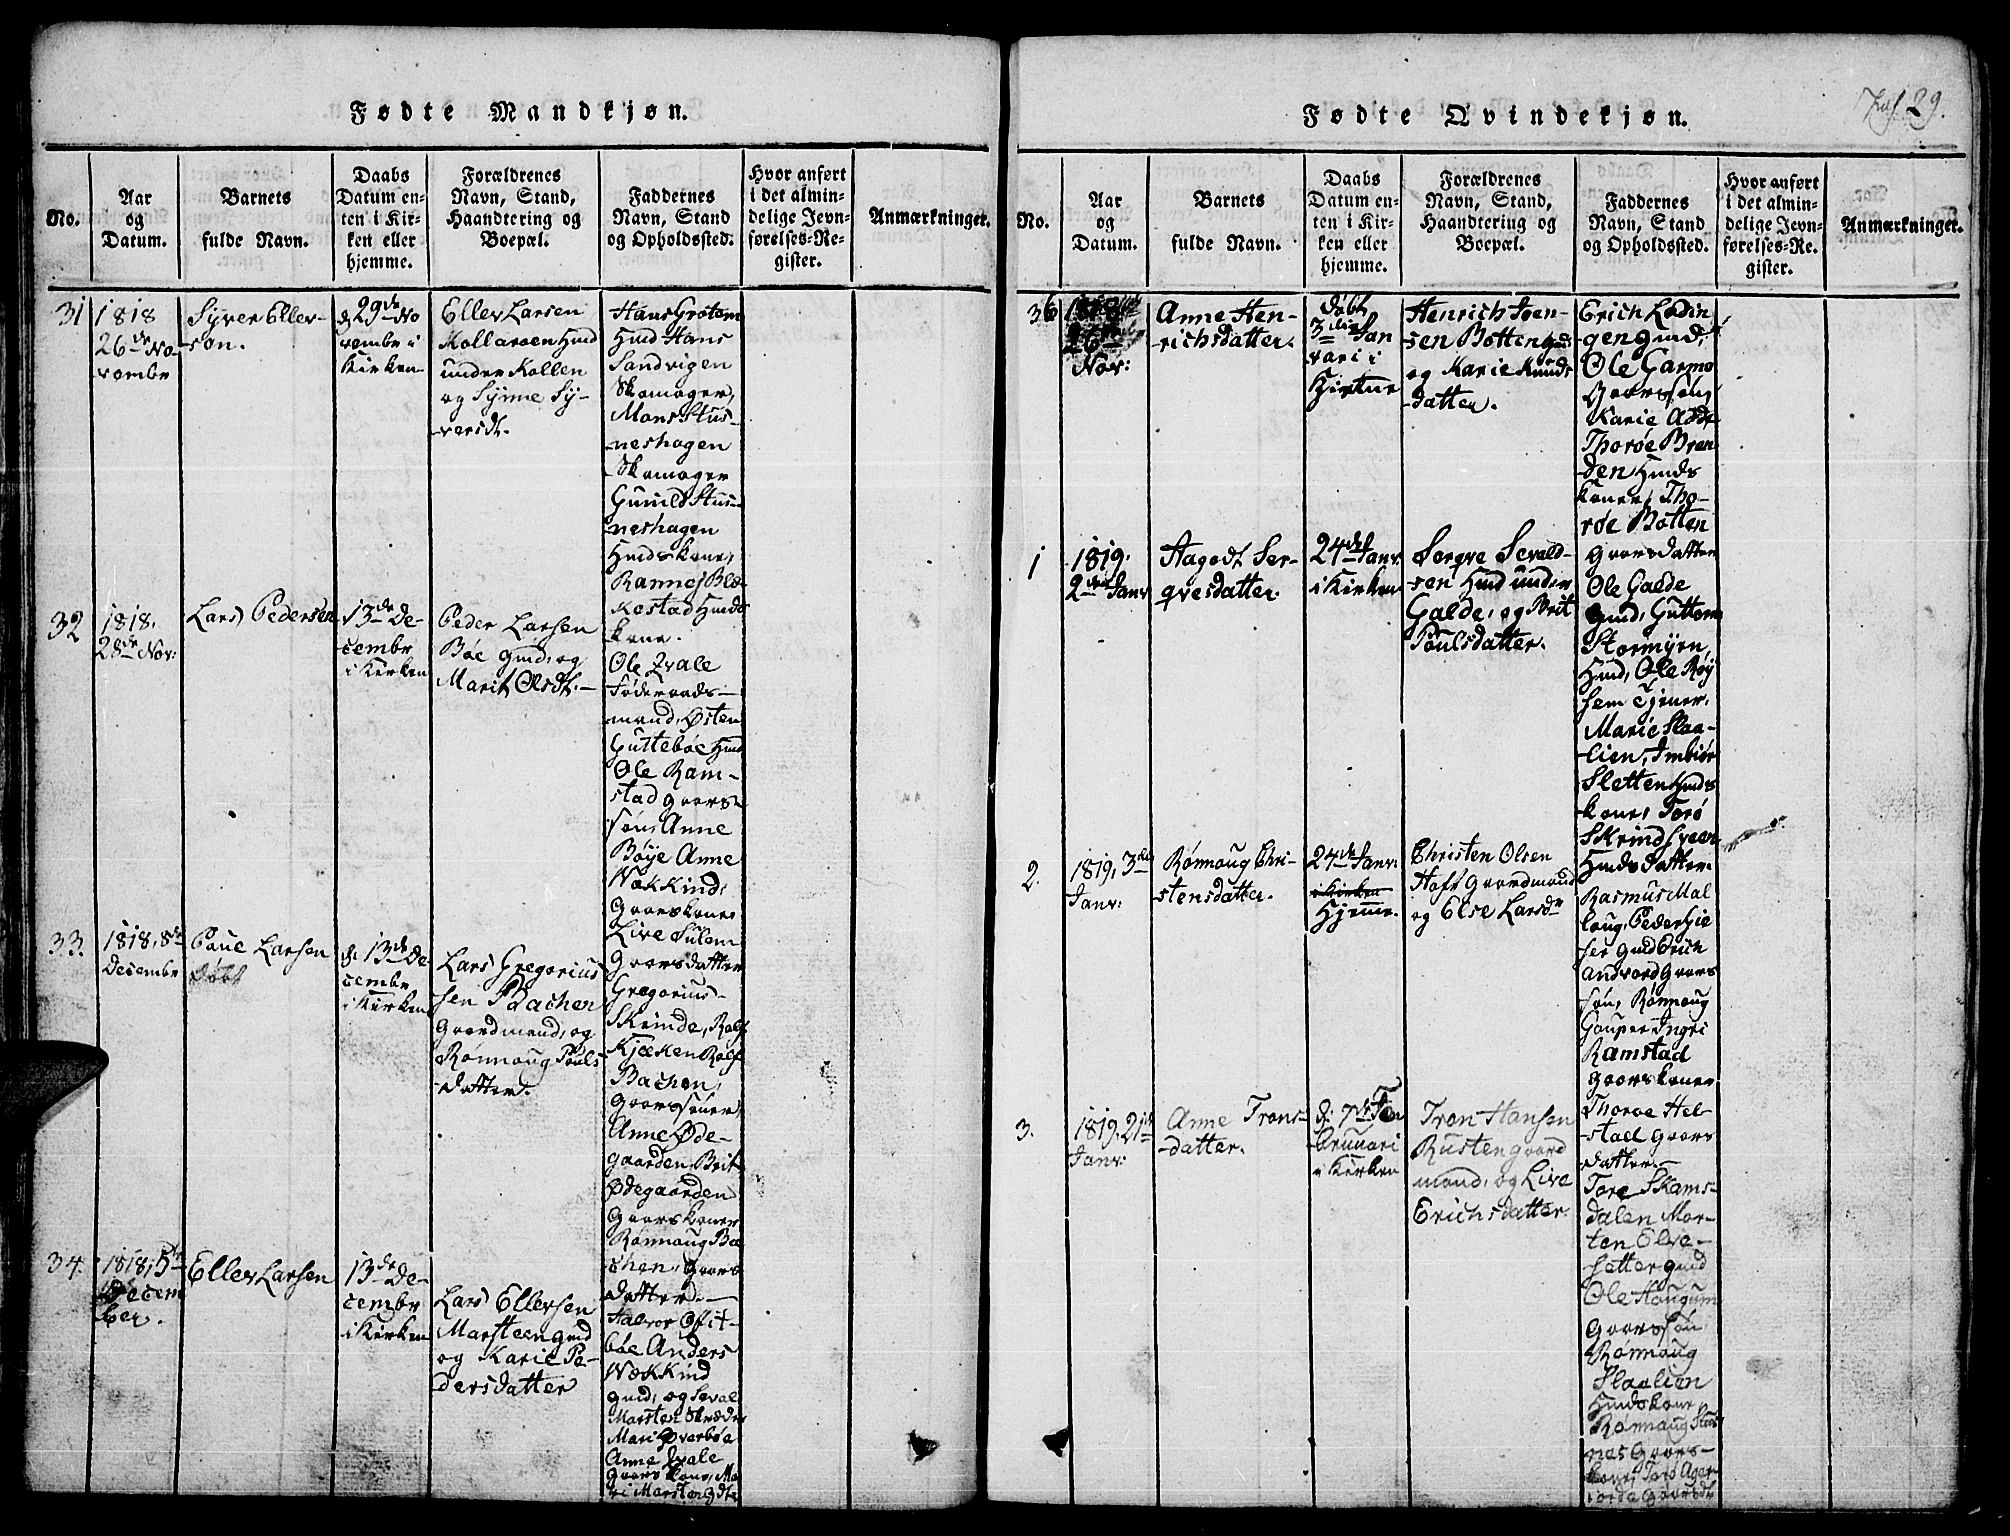 Fødte Mandkjøn.
No.
Aar
og
Datum.
Barnets
fulde Navn.
Daabs
Datum en-
ten i Kir-
ken eller
hjemme.
Forældrenes
Navn, Stand,
Haandtering og
Boepæl.
Faddernes
Navn, Stand
og Opholdssted.
Hvor anført
i det almin-
delige Jevn-
førelses-Re-
gister.
Anmærkninger.
31
1818
26de No-
vembr
Syver Eller-
søn.
d. 29de No
vembr i
Kirken
Eller Larsen
Kollaroen Hmd
under Kollen
og Synne Sy-
versdt.
Hans Grotem
Hmd Hans
Sandvigen
Skomager,
Mons Stus-
neshagen
Skomager
Gunild Stus-
neshagen
Hmdskone,
Rannej Blæ-
kastad Hmds
kone.
32
1818.
28de Nov:
Lars Pedersen
13de De-
cembr
i Kirken
Peder Larsen
Bøe Gmd, og
Marit Olsdt.
Ole Qvale
Føderaads-
mand, Østen
Guttebøe Hmd
Ole Ram-
stad Gaars-
søn, Anne
Bøye Anne
Wækkind,
Gaarskoner
Live Sulem
Gaarsdatter
33.
1818, 8de
Decembr
Poue Larsen
Døbt
d. 13de De-
cembr
i Kirken
Lars Gregorius
sen Bachen
Gaardmand, og
Rønnoug Pouls
datter.
Gregorius
Skrinde, Rolf
Kjæken Rolf
Bachen,
Gaarssøner,
Anne Øde-
gaarden, Brit
Ødegaarden
Gaarskoner
Rønnoug Ba-
chen, Gaars
datter.
34.
1818, 5te
Decem
ber.
Eller Larsen
13de De-
cembr
i Kirken
Lars Ellersen
Marsteen gmd
og Karie Pe-
dersdatter
Halvor Offit-
bøe Anders
Wækkind
gmd, og Seval
Marsten Skræder
Mari Øverbøe
Anne Qvale
Gaarskone, Ma
ri Marsten Gdtr
Fødte Qvindekjøn.
29.
No.
Aar
og
Datum.
Barnets
fulde Navn.
Daabs
Datum en-
ten i Kir-
ken eller
hjemme.
Forældrenes
Navn, Stand,
Haandtering og
Boepæl.
Faddernes
Navn, Stand
og Opholdssted.
Hvor anført
i det almin-
delige Jevn-
førelses-Re-
gister.
Anmærkninger.
36
1818
26de
Nov:
Anne Hen-
richsdatter.
Døbt
3die Jan
vari i
Henrich Joen-
sen Botten gmd
og Karie Knuds
datter.
Erich Lading-
gen gmd,
Ole Garmo
Gaarssøn
Karie
Thorøe Bran
den Hmds
koner, Tho-
røe Botten
Gaarsdatter
1
1819.
2den Janv
Aagodt Ser-
qvesdatter.
24de Janv
i Kirken
Serqve Sevald-
sen Hmd under
Galde, og Brit
Poulsdatter.
Ole Galde
gmd, Guttorm
Stormyrn,
Hmd, Ole Røy
sem Tjener,
Marie Slaa-
lien, Imbiør
Sletten Hmds
koner Torø
Skrindsveen
Hmdsdatter.
2.
1819, 3die
Janv:
Rønnoug Chri-
stensdatter.
24de Janv:
i Kirken
Hjemme.
Christen Olsen
Hoft Gaardmand
og Else Larsdr
Rasmus Mal
loug, Peder Gie
ser gmd Erich
Andvord Gaars
søn, Rønnoug
Gouper Ingri
Ramstad
Gaarskoner
Thorøe Hel-
stad Gaars
datter.
3.
1819. 21de
Janv:
Anne Trons-
datter.
d. 7de Fe
bruuari
i Kirken
Tron Hansen
Rusten gaard
mand, og Live
Erichsdatter.
Tore Skams-
dalen Mor-
ten Elve-
setter gmd
Ole Hougum
Gaarssøn
Rønnoug
Slaalien
Hmdskone
Rønnoug Stus
nes Gaars-
kone, Torø Ager-
jorda Gaarsdtr